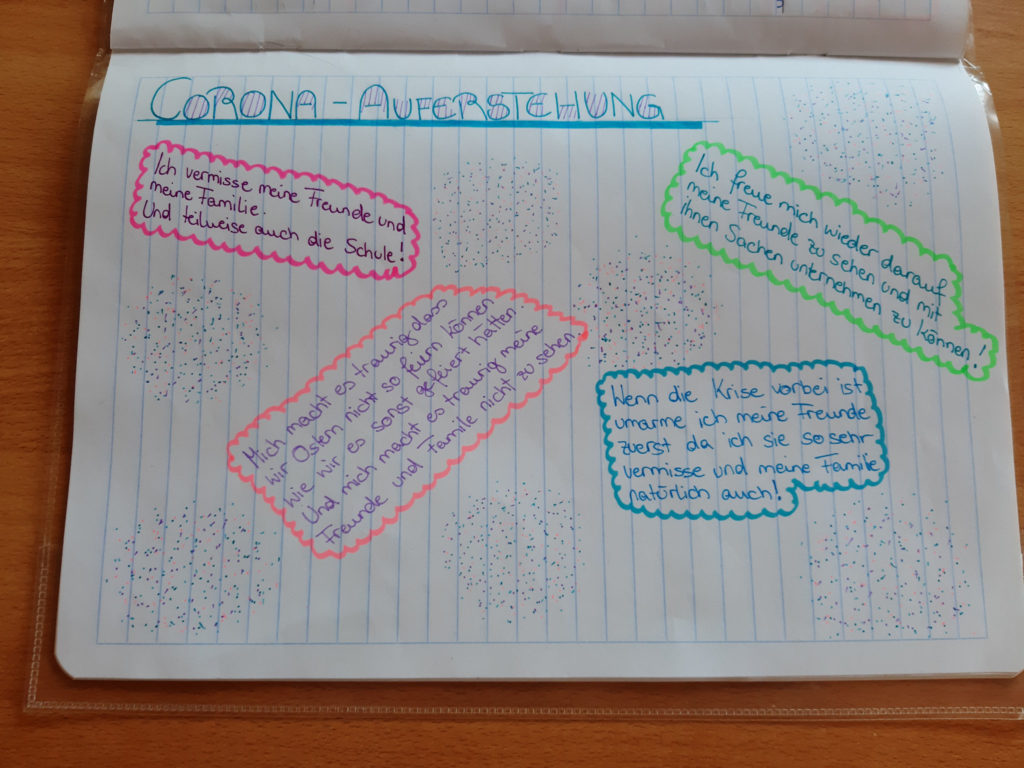 CORONA - AUFERSTEHUNG
Ich vermisse meine Freunde und
meine Familie.
Und teilweise auch die Schule!
Ich freue mich wieder darauf
meine Freunde zu sehen und mit
ihnen Sachen unternehmen zu können!
Mich macht es traurig dass
wir Ostern nicht so feiern können
wie wir es sonst gefeiert hätten
Und mich macht es traurig meine
Freunde und Familie nicht zu sehen.
Wenn die Krise vorbei ist
umarme ich meine Freunde
zuerst da ich sie so sehr
vermisse und meine Familie
natürlich auch!